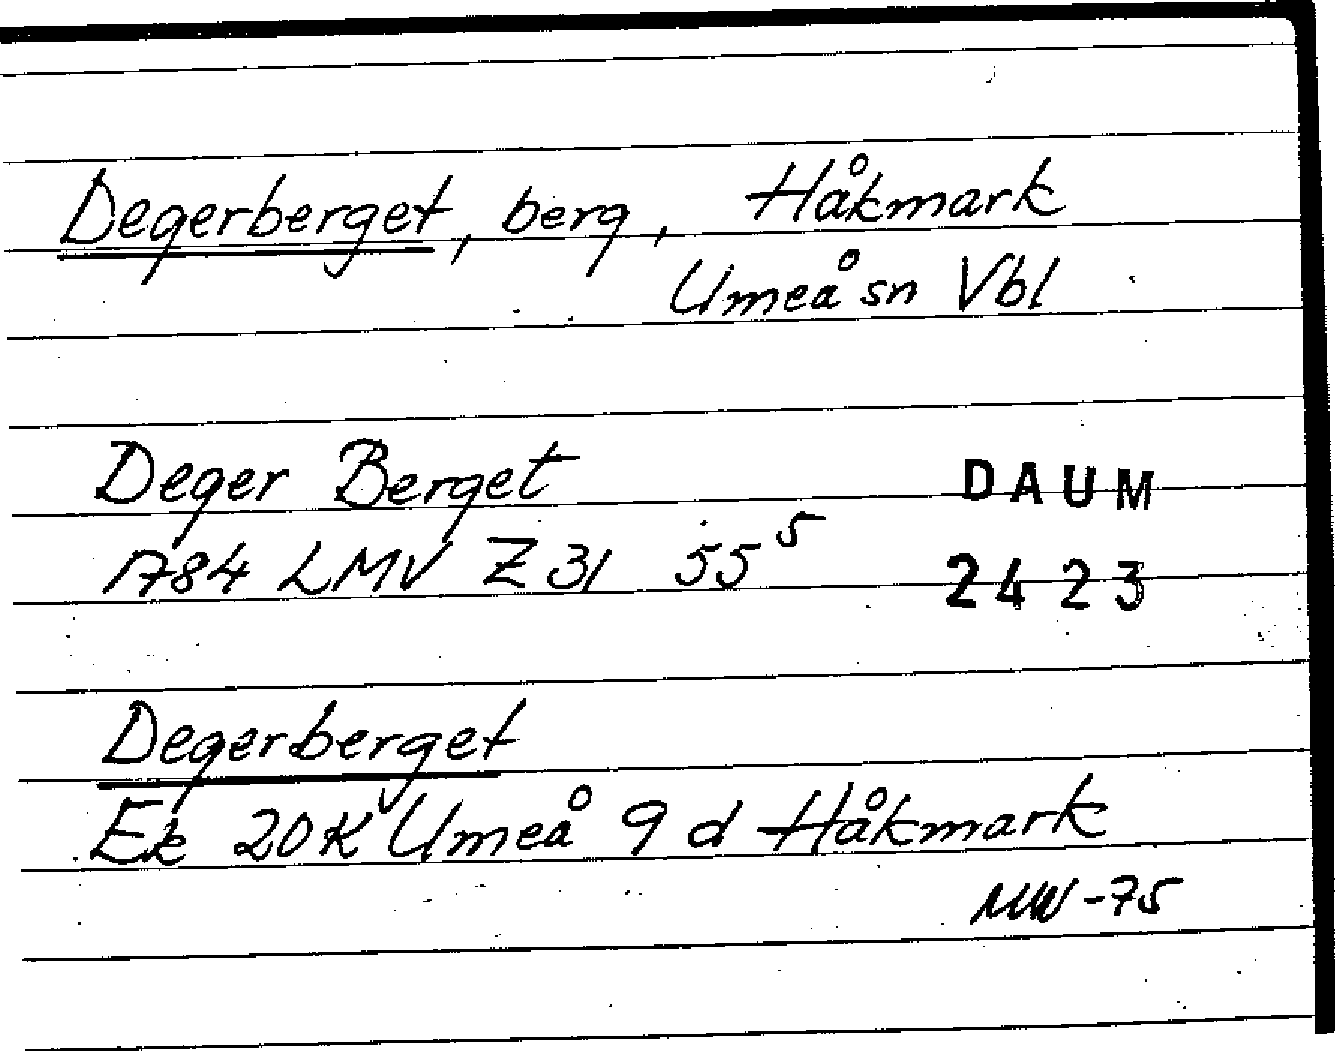 Degerberget, berg, Håkmark
Umeå sn Vbl
Deger Berget
1784 LMV Z 31 55⁵
DAUM
2423
Degerberget
Ek 20K Umeå 9 d Håkmark
MW-75